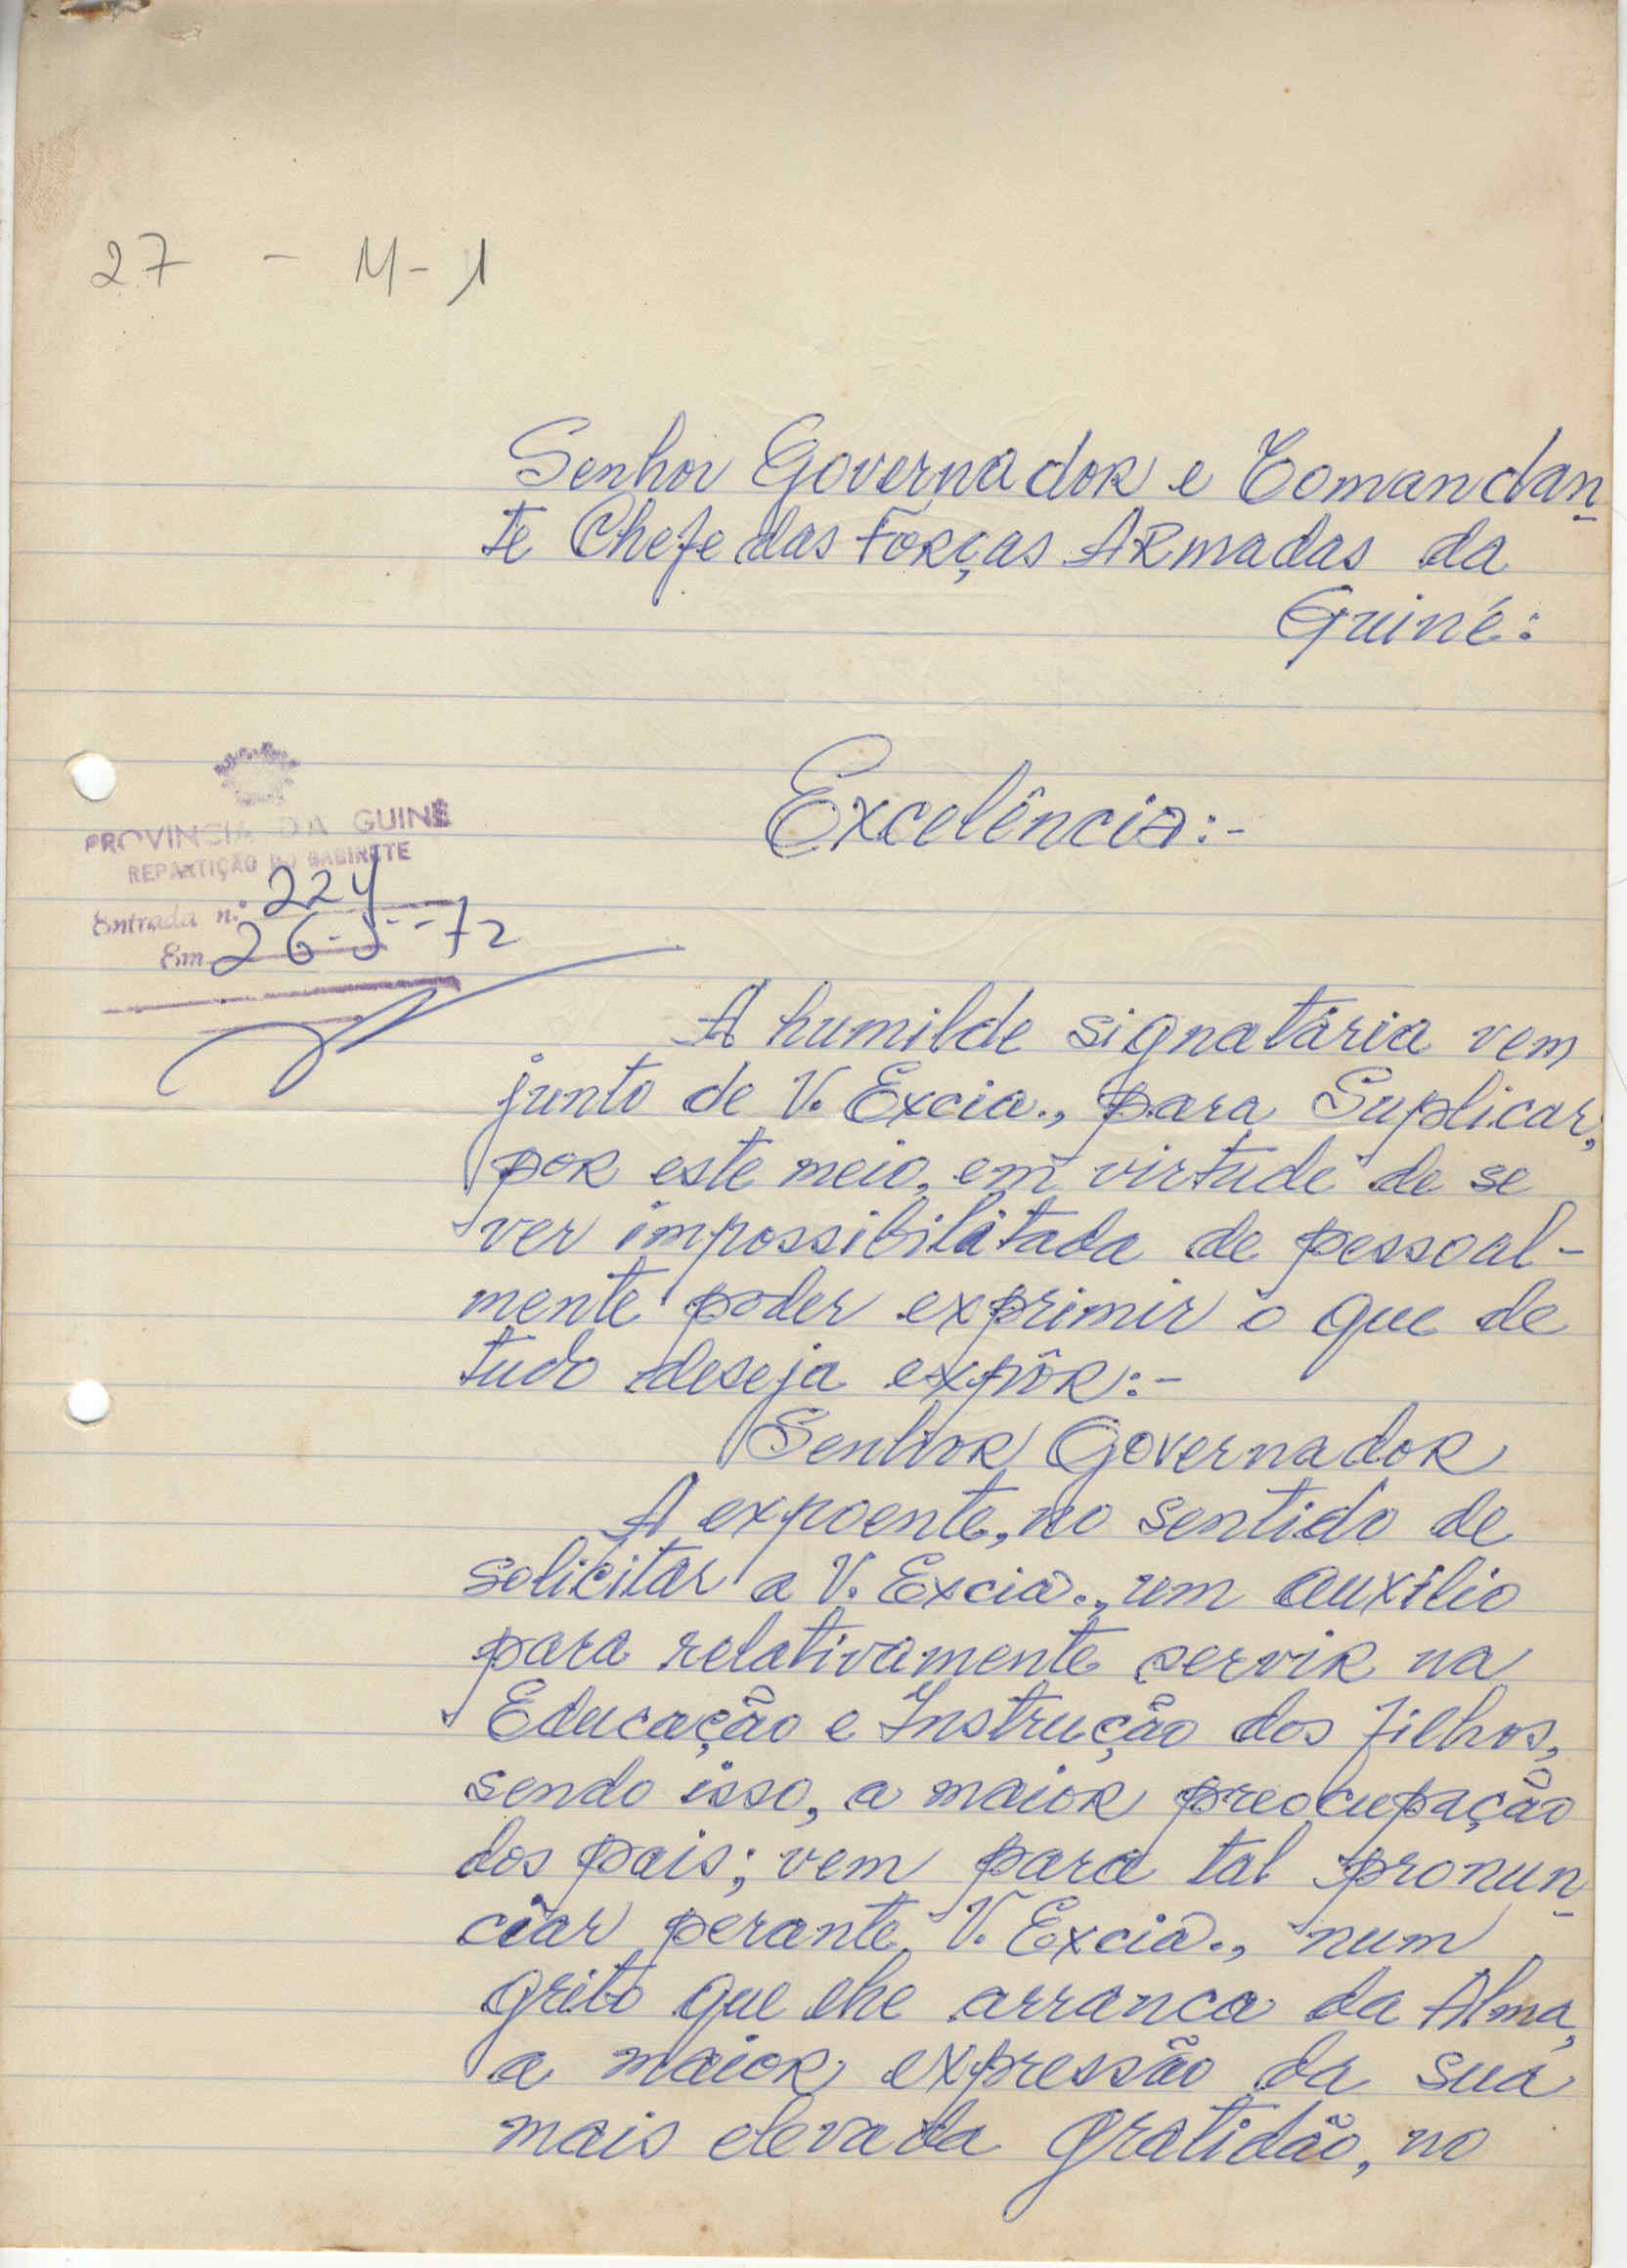 27 - M-1
Senhor Governador e Comandan
te Chefe das Forças Armadas da
Guiné:
Excelência:-
PROVINCIA DA GUINÉ
REPARTIÇÃO DO GABINETE
Entrada n.º 224
Em 26-5-72
A humilde signatária vem
junto de V. Excia., para Suplicar,
por este meio, em virtude de se
ver impossibilitada de pessoal-
mente poder exprimir o que de
tudo deseja expôr:-
Senhor Governador
A expoente, no sentido de
solicitar a V. Excia., um auxílio
para relativamente servir na
Educação e Instrução dos filhos,
sendo isso, a maior preocupação
dos pais; vem para tal pronun
ciar perante V. Excia., num
grito que lhe arranca da Alma,
a maior expressão da sua
mais elevada gratidão, no